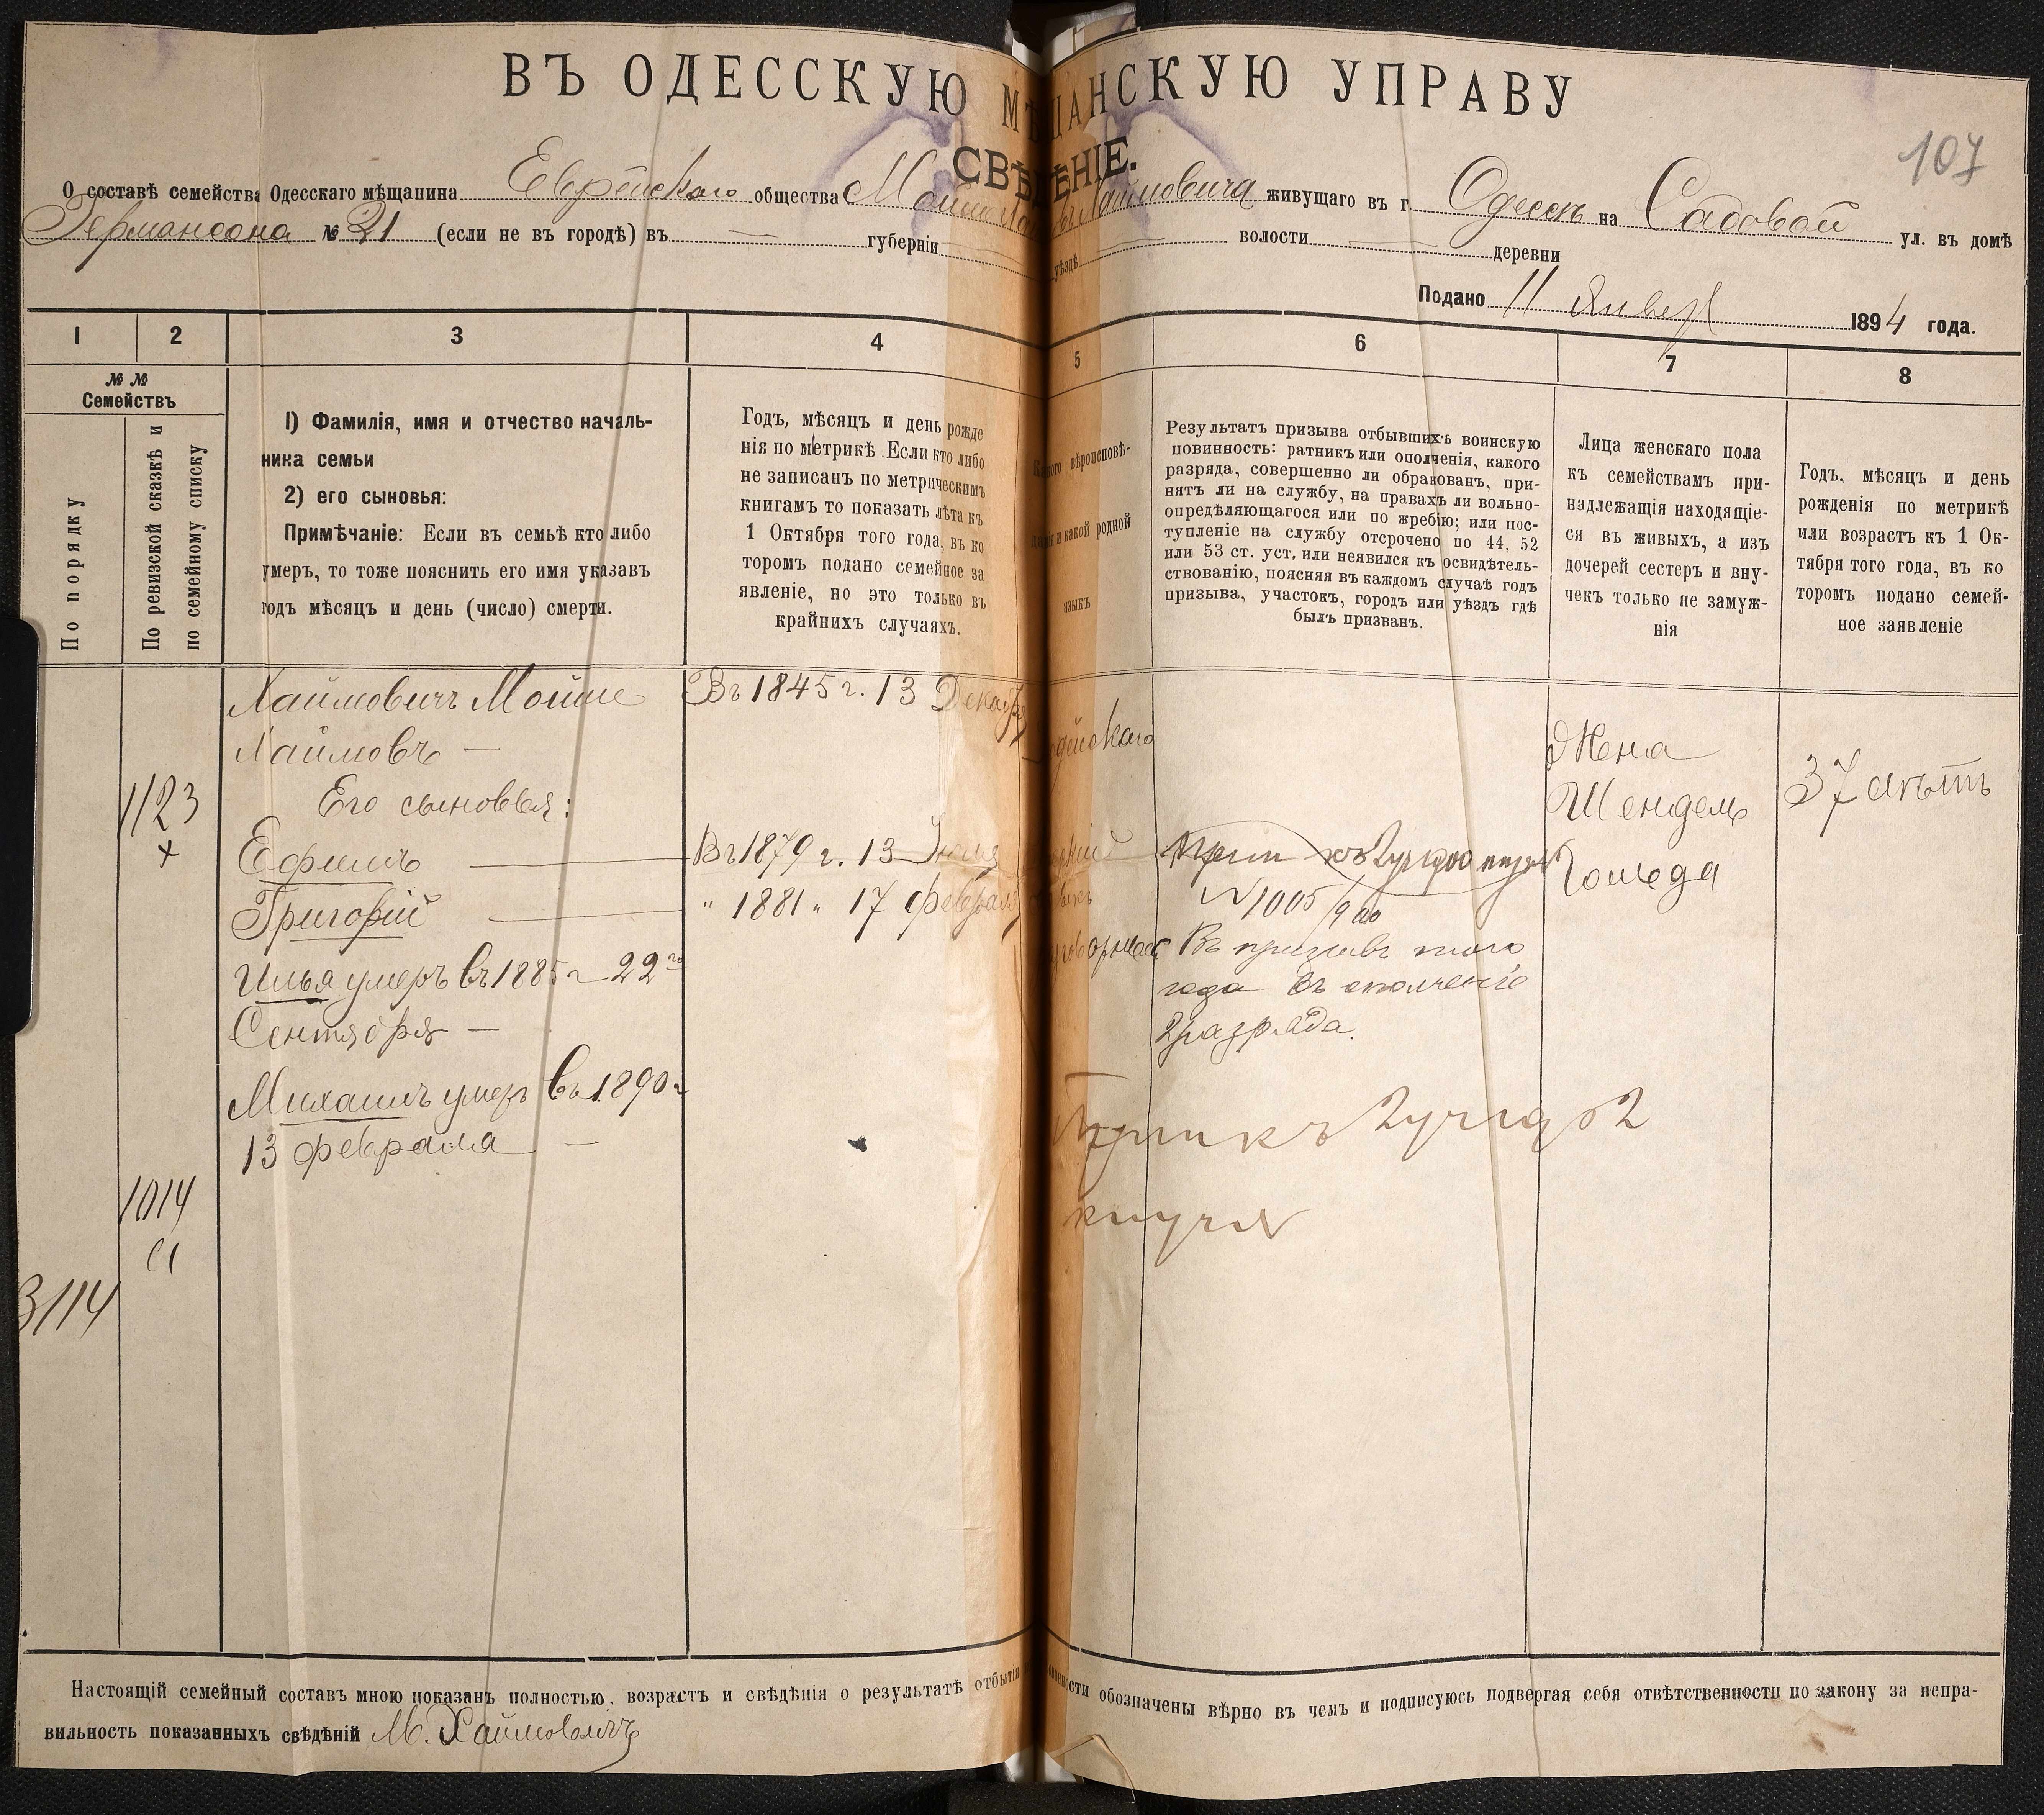 ВЪ ОДЕССКУЮ МѢЩАНСКУЮ УПРАВУ
СВѢДѢНІЕ.
107
О составѣ семейства Одесскаго мѣщанина Еврейскаго общества Мойше Хаимовъ Хаимовича живущаго въ г. Одессѣ на Садовой ул. въ домѣ
Германсона № 21 (если не въ городѣ) въ — губерніи — уѣздѣ — волости — деревни
Подано 11 Января 1894 года.
1 2 3 4 5 6 7 8
№ №
Семействъ
По порядку
По ревизской сказкѣ и
по семейному списку
1) Фамилія, имя и отчество началь-
ника семьи
2) его сыновья:
Примѣчаніе: Если въ семьѣ кто либо
умеръ, то тоже пояснить его имя указавъ
годъ мѣсяцъ и день (число) смерти.
Годъ, мѣсяцъ и день рожде
нія по метрикѣ. Если кто либо
не записанъ по метрическимъ
книгамъ то показать лѣта къ
1 Октября того года, въ ко
торомъ подано семейное за
явленіе, но это только въ
крайнихъ случаяхъ.
вѣроисповѣ-
и какой родной
языкъ
Результатъ призыва отбывшихъ воинскую
повинность: ратникъ или ополченія, какого
разряда, совершенно ли обракованъ, при-
нятъ ли на службу, на правахъ ли вольно-
опредѣляющагося или по жребію; или пос-
тупленіе на службу отсрочено по 44, 52
или 53 ст. уст. или неявился къ освидѣтель-
ствованію, поясняя въ каждомъ случаѣ годъ
призыва, участокъ, городъ или уѣздъ гдѣ
былъ призванъ.
Лица женскаго пола
къ семействамъ при-
надлежащія находящіе-
ся въ живыхъ, а изъ
дочерей сестеръ и вну-
чекъ только не замуж-
нія
Годъ, мѣсяцъ и день
рожденія по метрикѣ
или возрастъ къ 1 Ок-
тября того года, въ ко
торомъ подано семей-
ное заявленіе
Хаимовичъ Мойше
Хаимовъ —
Его сыновья:
Ефимъ
Григорій
Илья умеръ въ 1885 г 22го
Сентября —
Михаилъ умеръ въ 1890 г
13 февраля —
1123
×
1014
3114
Въ 1845 г. 13 Декабря
Въ 1879 г. 13 Іюня
" 1881 " 17 февраля
Прип къ 2 уч 1900
№ 1005/900
Въ призывъ того
года въ ополченіе
2 разряда.
Прип къ 2 уч
Жена
Шендель
Гольда
37 лѣтъ
Настоящій семейный составъ мною показанъ полностью, возрастъ и свѣдѣнія о результатѣ отбытія повинности обозначены вѣрно въ чемъ и подписуюсь подвергая себя отвѣтственности по закону за непра-
вильность показанныхъ свѣдѣній М. Хаимовичъ